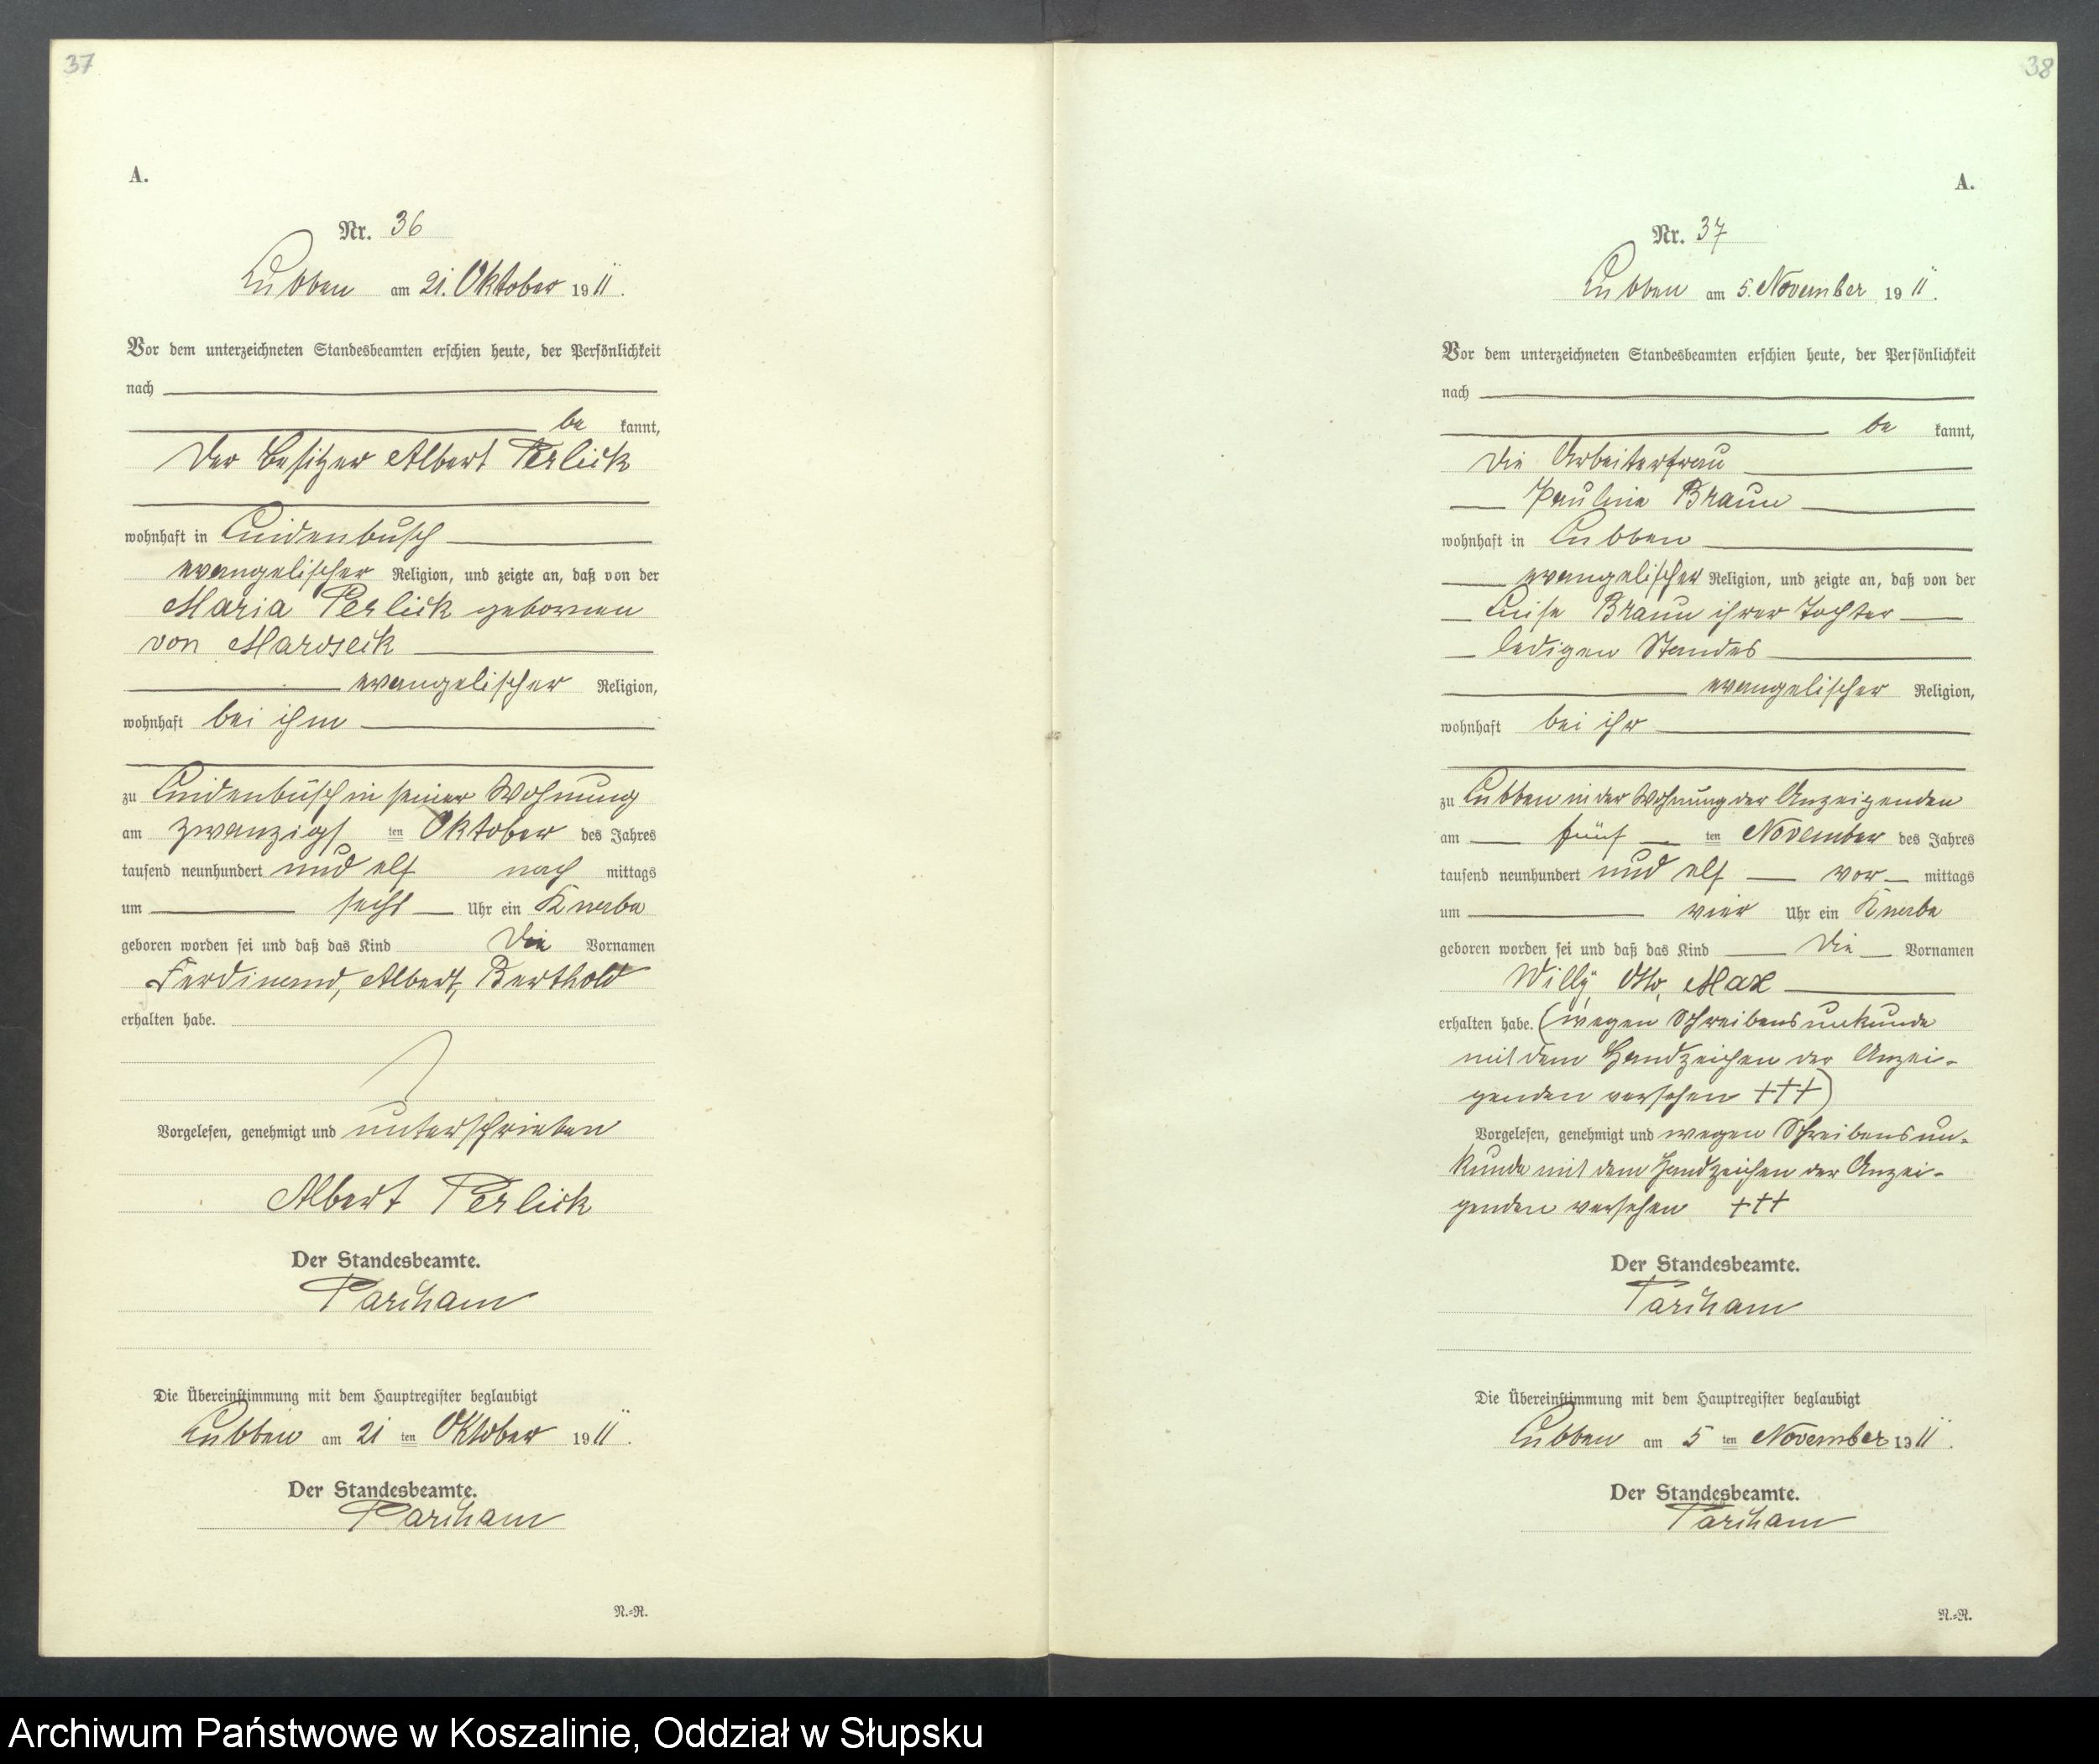 37
A.
Nr. 36
Lubben am 21. Oktober 1911.
Vor dem unterzeichneten Standesbeamten erschien heute, der Persönlichkeit
nach
be kannt,
der Besitzer Albert Perlick
wohnhaft in Lindenbusch
evangelischer Religion, und zeigte an, daß von der
Maria Perlick geborenen
von
evangelischer Religion,
wohnhaft bei ihm
zu Lindenbusch in seiner Wohnung
am zwanzigsten Oktober des Jahres
tausend neunhundert und elf nach mittags
um sechs Uhr ein Knabe
geboren worden sei und daß das Kind die Vornamen
Ferdinand, Albert, Berthold
erhalten habe.
Vorgelesen, genehmigt und unterschrieben
Albert Perlick
Der Standesbeamte.
Die Übereinstimmung mit dem Hauptregister beglaubigt
Lubben am 21 ten Oktober 1911.
Der Standesbeamte.
N.=R.
38
A.
Nr. 37
Lubben am 5. November 1911.
Vor dem unterzeichneten Standesbeamten erschien heute, der Persönlichkeit
nach
be kannt,
die Arbeiterfrau
Pauline Braun
wohnhaft in Lubben
evangelischer Religion, und zeigte an, daß von der
Luise Braun ihrer Tochter
ledigen Standes
evangelischer Religion,
wohnhaft bei ihr
zu Lubben in der Wohnung der Anzeigenden
am fünf ten November des Jahres
tausend neunhundert und elf vor mittags
um vier Uhr ein Knabe
geboren worden sei und daß das Kind die Vornamen
Willy, Otto, Max
erhalten habe. (wegen Schreibensunkunde
mit dem Handzeichen der Anzei-
genden versehen +++)
Vorgelesen, genehmigt und wegen Schreibensun-
kunde mit dem Handzeichen der Anzei-
genden versehen +++
Der Standesbeamte.
Die Übereinstimmung mit dem Hauptregister beglaubigt
Lubben am 5 ten November 1911.
Der Standesbeamte.
N.=R.
Archiwum Państwowe w Koszalinie, Oddział w Słupsku